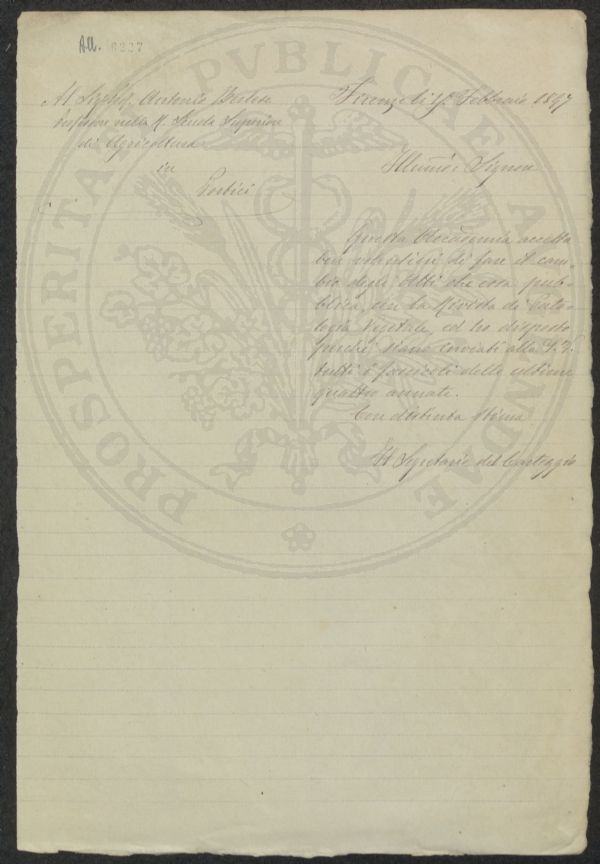 All. 6227
Al Sig. Prof. Antonio Berlese
Professore nella R. Scuola Superiore
di Agricoltura
in
Portici
Firenze li Febbraio 1897
Illmo. Signore
Questa Accademia accetta
ben volentieri di fare il cam-
bio degli Atti che essa pub-
blica, con la Rivista di Pato-
logia Vegetale, ed ho disposto
perché siano inviati alla S. V.
tutti i fascicoli delle ultime
quattro annate.
Con distinta stima
Il Segretario del Carteggio
PROSPERITATI PVBLICAE AVGENDAE